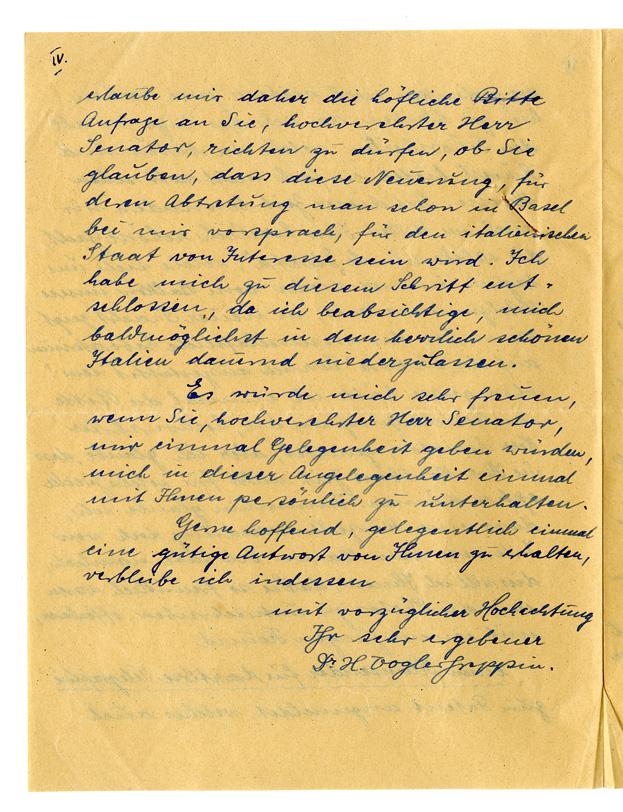 IV.
erlaube mir daher die höfliche Bitte
Anfrage an Sie, hochverehrter Herr
Senator, richten zu dürfen, ob Sie
glauben, dass diese Neuerung, für
deren Abtretung man schon in Basel
bei mir vorsprach, für den italienischen
Staat von Interesse sein wird. Ich
habe mich zu diesem Schritt ent-
schlossen, da ich beabsichtige, mich
baldmöglichst in dem herrlich schönen
Italien dauernd niederzulassen.
Es würde mich sehr freuen,
wenn Sie, hochverehrter Herr Senator,
mir einmal Gelegenheit geben würden,
mich in dieser Angelegenheit einmal
mit Ihnen persönlich zu unterhalten.
Gerne hoffend, gelegentlich einmal
eine gütige Antwort von Ihnen zu erhalten,
verbleibe ich indessen
mit vorzüglicher Hochachtung
Ihr sehr ergebener
Dr H. Vogler